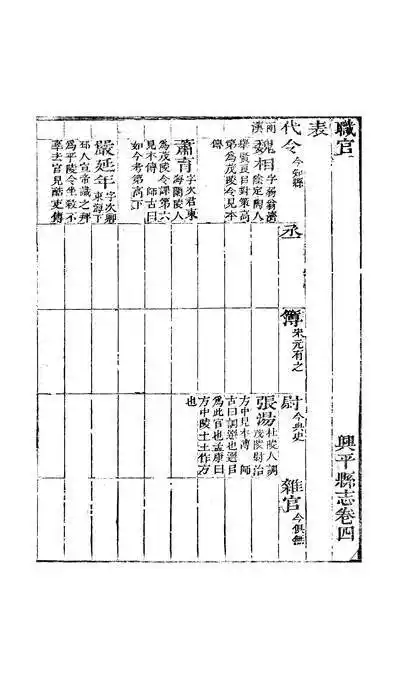 職官 興平縣志卷四
表
代 令 今知縣
丞
簿 宋元有之
尉 今典史
雜官 今俱無
兩漢
魏相 字弱翁濟
陰定陶人
舉賢良目對策高
第為茂陵令見本
傳
張湯 杜陵人調
茂陵尉治
方中見本傳 師
古曰調選也選目
為此官也孟康曰
方中陵土土作方
也
蕭育 字次君東
海蘭陵人
為茂陵令課第六
見本傳 師古曰
如今考第高下
嚴延年 字次卿
東海下
邳人宣帝識之拜
為平陵令坐殺不
辜去官見酷吏傳